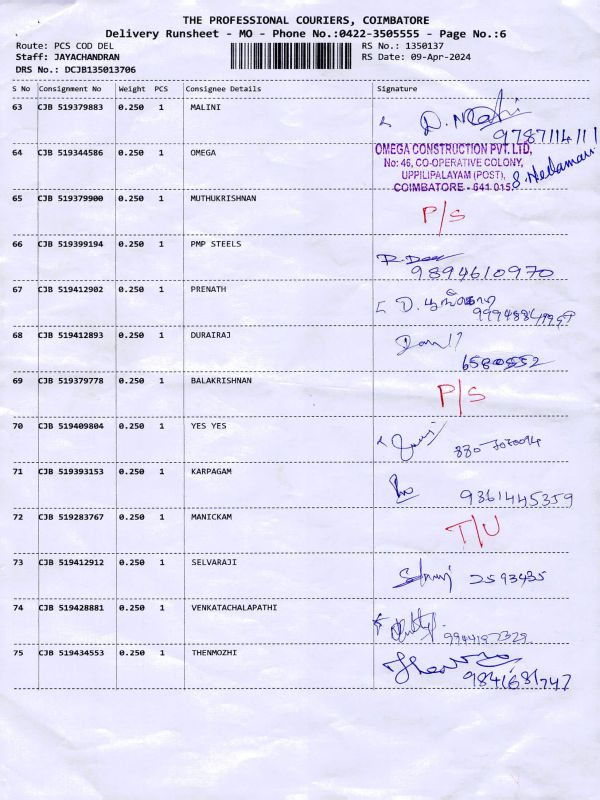 THE PROFESSIONAL COURIERS, COIMBATORE
Delivery Runsheet - MO - Phone No.:0422-3505555 - Page No.:6
Route: PCS COD DEL RS No.: 1350137
Staff: JAYACHANDRAN RS Date: 09-Apr-2024
DRS No.: DCJB135013706
S No Consignment No Weight PCS Consignee Details Signature
63 CJB 519379883 0.250 1 MALINI
9787114111
64 CJB 519344586 0.250 1 OMEGA
OMEGA CONSTRUCTION PVT. LTD,
No: 46, CO-OPERATIVE COLONY,
UPPILIPALAYAM (POST),
COIMBATORE - 641 015
65 CJB 519379900 0.250 1 MUTHUKRISHNAN P/S
66 CJB 519399194 0.250 1 PMP STEELS
9894610970
67 CJB 519412902 0.250 1 PRENATH
68 CJB 519412893 0.250 1 DURAIRAJ
69 CJB 519379778 0.250 1 BALAKRISHNAN P/S
70 CJB 519409804 0.250 1 YES YES
71 CJB 519393153 0.250 1 KARPAGAM
9361445359
72 CJB 519283767 0.250 1 MANICKAM T/U
73 CJB 519412912 0.250 1 SELVARAJI 2593435
74 CJB 519428881 0.250 1 VENKATACHALAPATHI
9944187329
75 CJB 519434553 0.250 1 THENMOZHI
9841681747